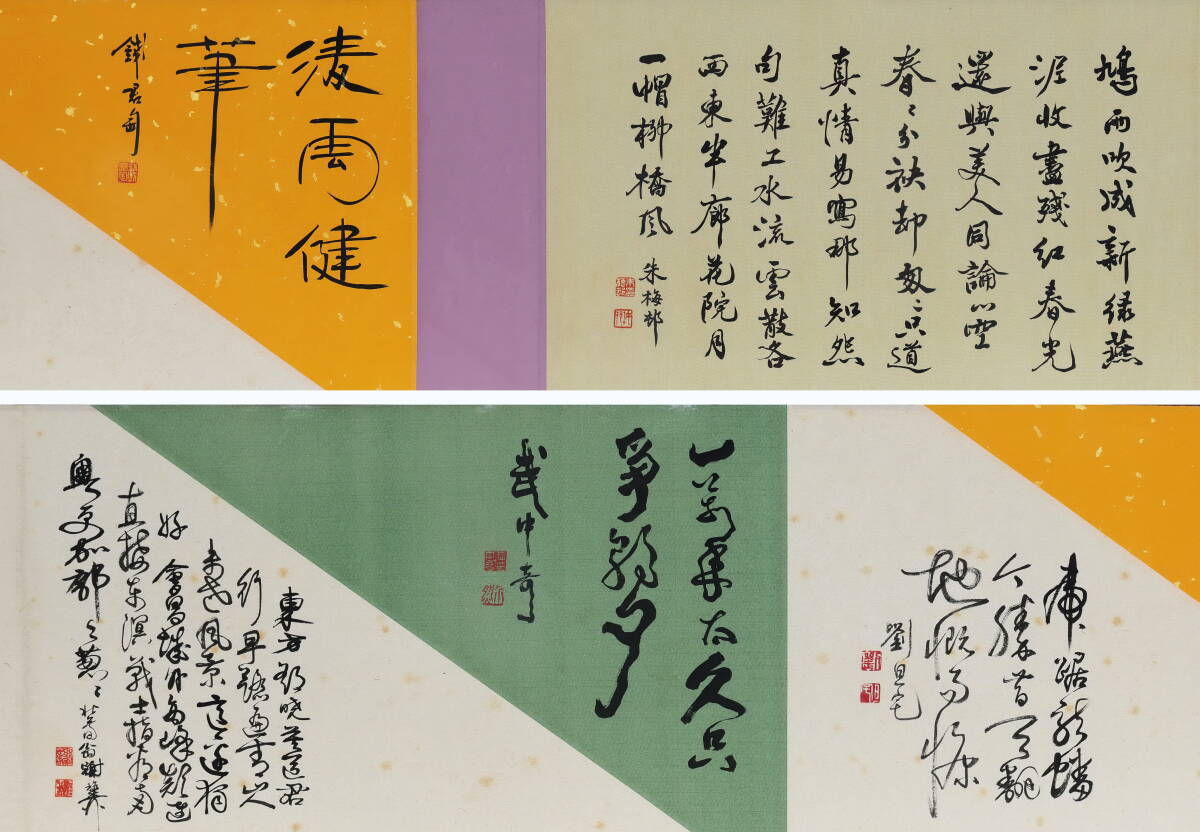 鳩雨吹成新绿燕
泥收盡殘红春光
還與美人同論心空
眷〻分袂却匆〻只道
真情易寫那知怨
句難工水流雲散各
西東半廊花院月
一帽柳橋風
朱梅邨
凌雲健
筆
錢君匋
虎踞龍蟠
今勝昔天翻
地慨而慷
劉旦宅
一万年太久只
争朝夕
武中奇
東方欲曉莫道君
行早踏遍青山人
未老風景這邊独
好 會昌城外高峰顛連
直接东溟戰士指看南
粤更加鬱〻葱〻